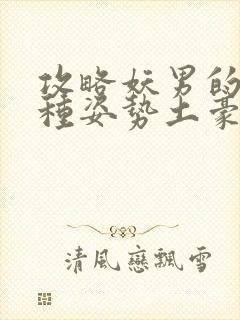 攻略妖男的
種姿勢土豪
清風戀飄雪